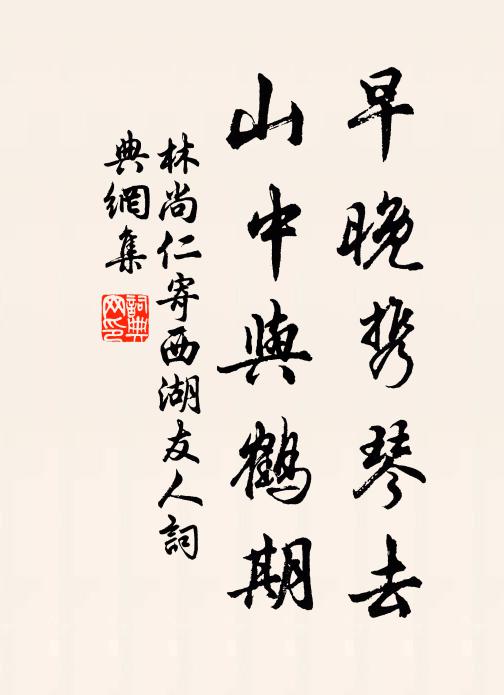 早晚携琴去
山中與鶴期
林尚仁寄西湖友人詞
典網集
詞典
网印